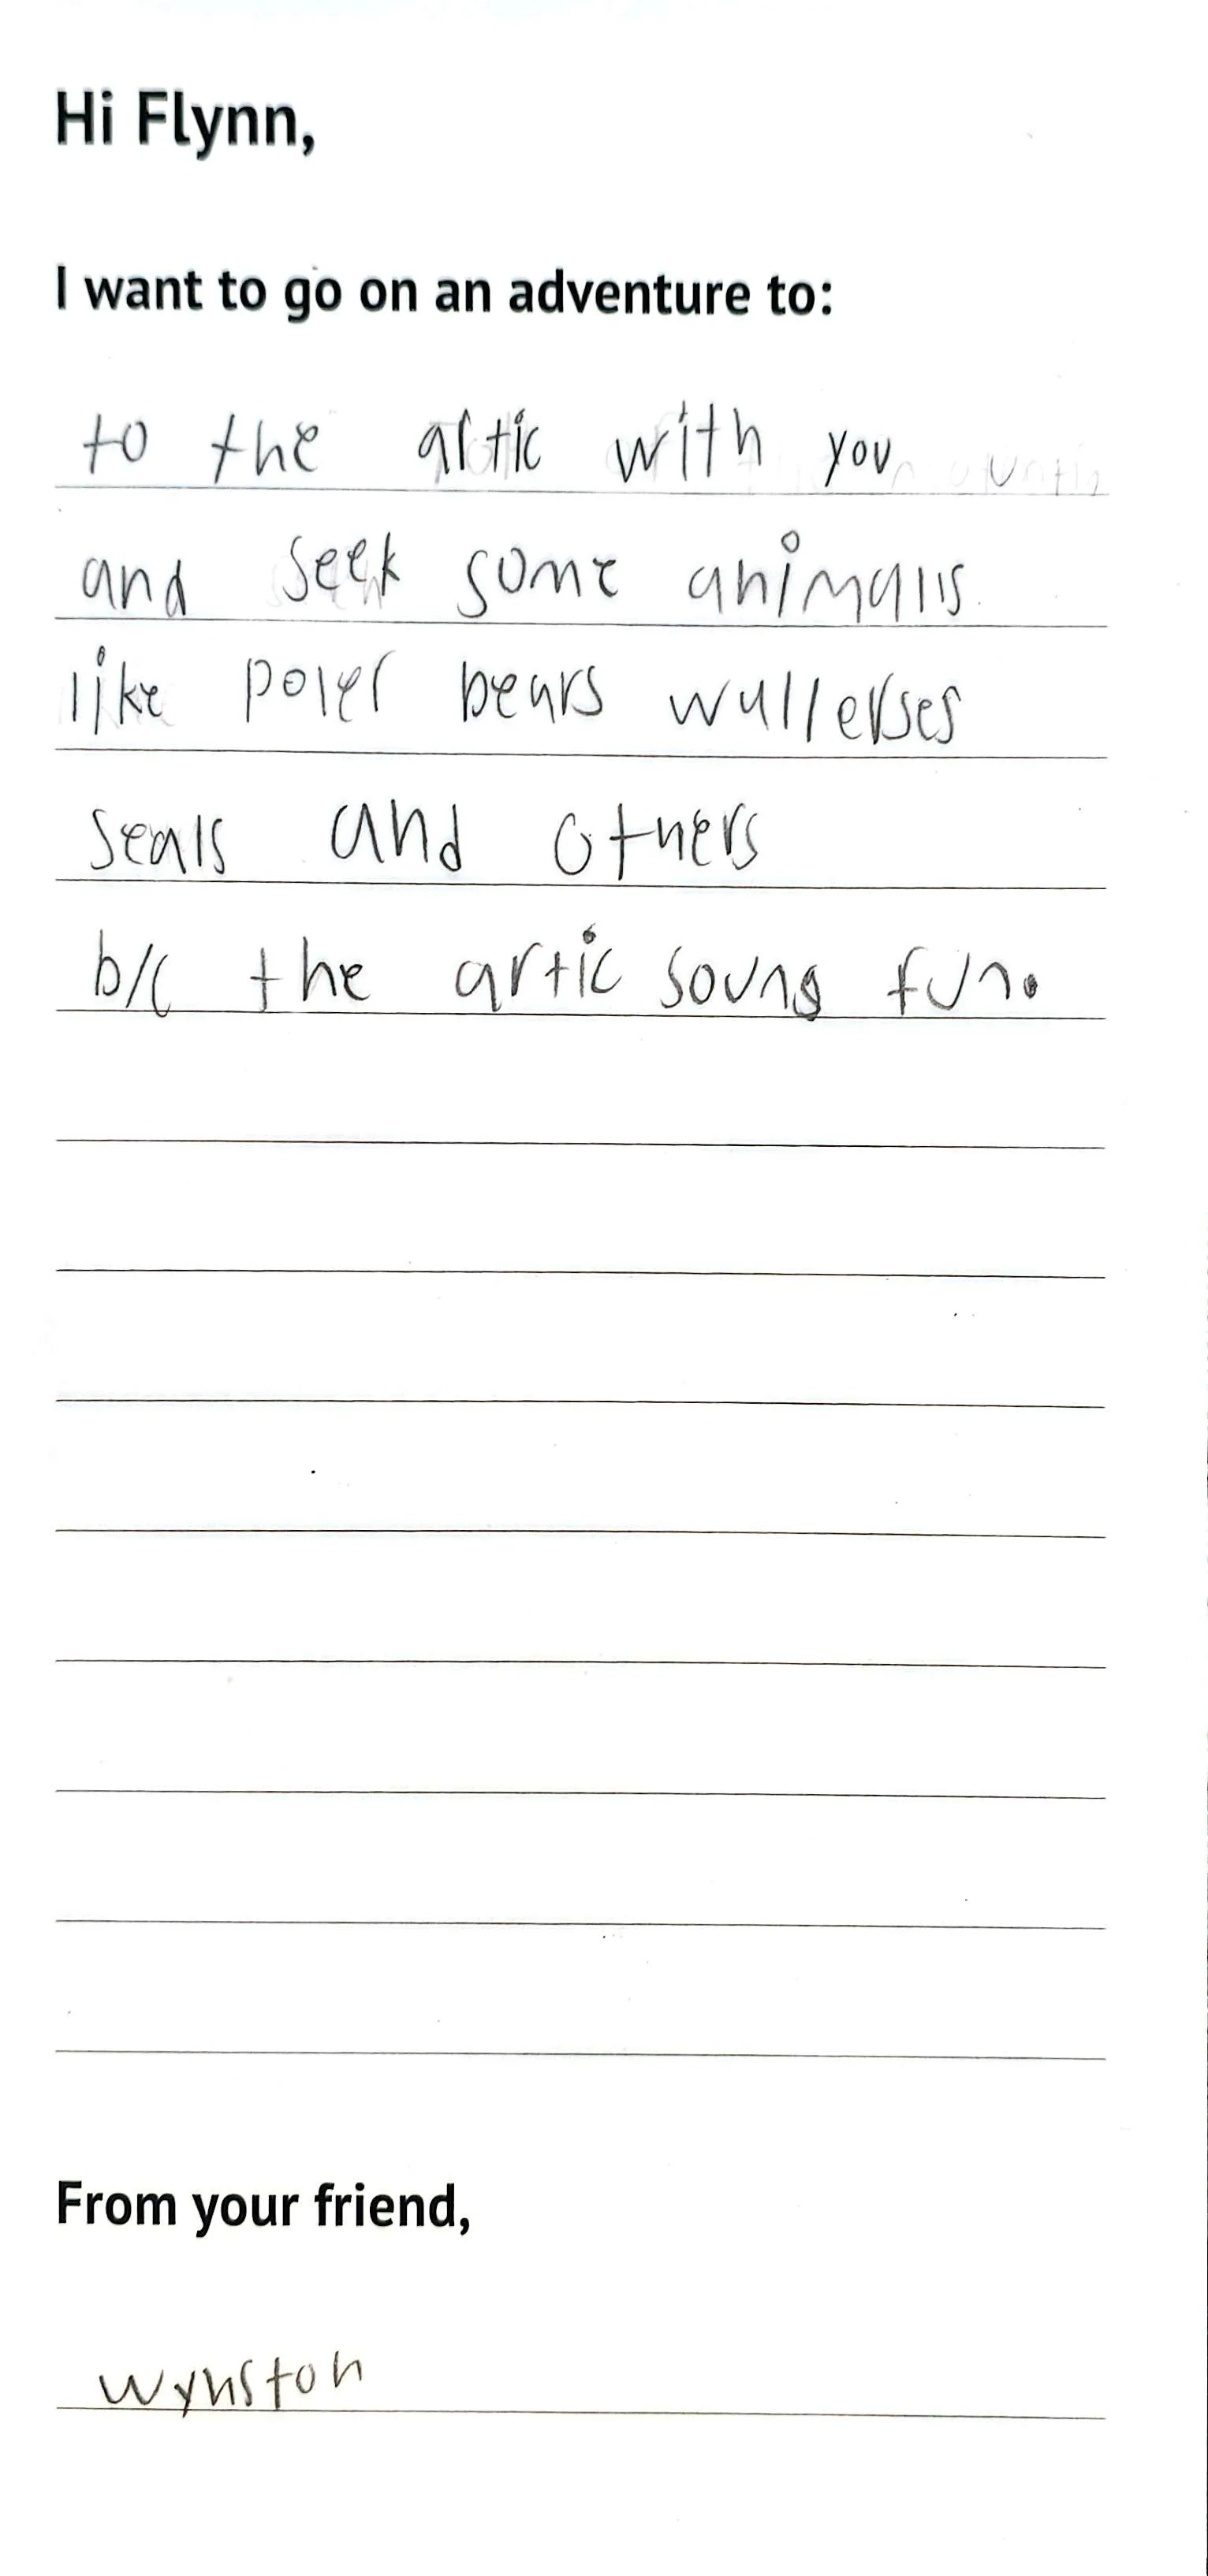 Hi Flynn,
I want to go on an adventure to:
to the artic with you
and seek some animals
like poler bears wullerses
seals and others
b/c the artic soung fun.
From your friend,
wynston